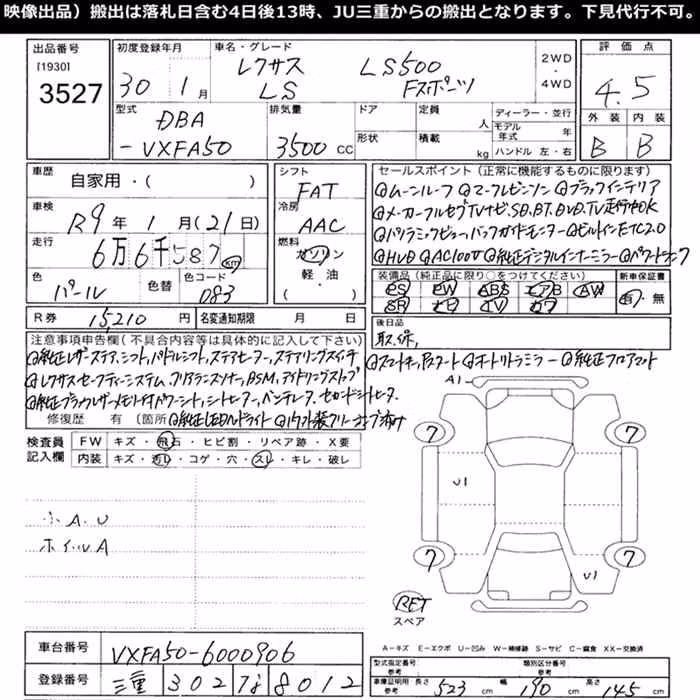 映像出品）搬出は落札日含む4日後13時、JU三重からの搬出となります。下見代行不可。
出品番号 [1930] 3527
初度登録年月 30 1月
車名・グレード レクサス LS LS500 Fスポーツ
2WD・4WD
評価点 4.5
外装 B 内装 B
型式 DBA-VXFA50
排気量 3500CC
ドア 形状
定員 人 積載 kg
ディーラー・並行
モデル年式 年
ハンドル 左・右
車歴 自家用・( )
車検 R9年1月(21日)
走行 6万6千587km
色 パール 色替 色コード 083
シフト FAT
冷房 AAC
燃料 ガソリン・軽・油 ( )
R券 15,210円 名変通知期限 月 日
セールスポイント（正常に機能するものに限ります）
@ムーンルーフ @マークレビンソン @ブラックインテリア
@メーカーフルセグTVナビ.SD.BT.DVD.TV走行中OK
@パノラミックビュー,バックガイドモニター @ビルトインETC2.0
@HUD @AC100V @純正デジタルインナーミラー @パワートランク
装備品（純正品に限り○をつけてください）
PS PW ABS エアB AW
SR ナビ TV カワ
新車保証書 有・無
後日品 取.保,
注意事項申告欄(不具合内容等は具体的に記入して下さい)
@純正レザーステア,シフト,パドルシフト,ステアヒーター,ステアリングスイッチ @スマートキー,Pスタート @オートリトラミラー @純正フロアマット
@レクサスセーフティーシステム,クリアランスソナー,BSM,アイドリングストップ
@純正ブラックレザーメモリ付パワーシート,シートヒーター,ベンチレータ,セカンドシートヒーター
修復歴 有 〔箇所 @純正LEDヘッドライト
検査員記入欄
FW キズ・飛石・ヒビ割・リペア跡・X要
内装 キズ・汚レ・コゲ・穴・スレ・キレ・破レ
小A.U
ホイールA
A1
7 7
U1
7 7
U1
RFT
スペア
A－キズ E－エクボ U－凹み W－補修跡 S－サビ C－腐食 XX－交換済
車台番号 VXFA50-6000906
登録番号 三重 302 す 8012
型式指定番号 参考 類別区分番号 参考
車庫証明用・長さ 参考 523cm 幅 190cm 高さ 145cm